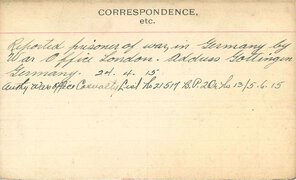 CORRESPONDENCE,
etc.
Reported prisoner of war, in Germany by
War Office London. Address Gottingen
Germany. 24. 4. 15
Authy War Office Casualty List No 21517 B.P.2 Or No 13/5.6.15